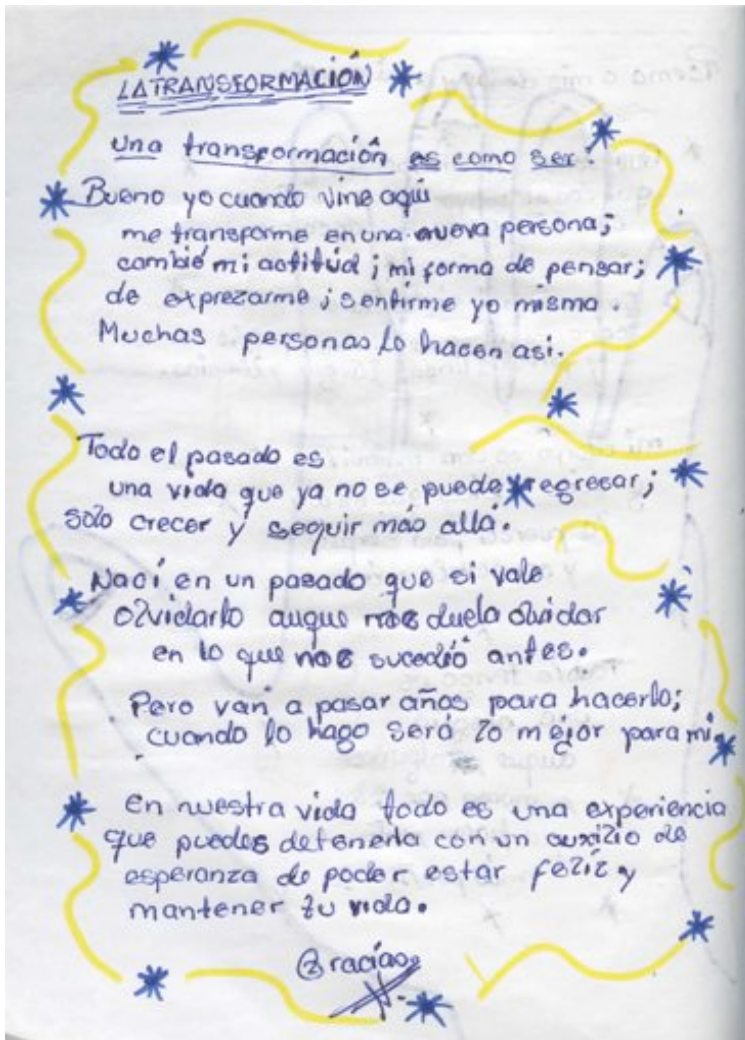 LA TRANSFORMACIÓN
Una transformación es como ser:
Bueno yo cuando vine aqui
me transforme en una nueva persona;
cambié mi actitud; mi forma de pensar;
de exprezarme; sentirme yo misma.
Muchas personas lo hacen asi.
Todo el pasado es
una vida que ya no se puede regresar;
solo crecer y seguir más allá.
Nací en un pasado que si vale
olvidarlo auque nos duela olvidar
en lo que nos sucedió antes.
Pero van a pasar años para hacerlo;
cuando lo hago será lo mejor para mi.
En nuestra vida todo es una experiencia
que puedes detenerla con un auxilio de
esperanza de poder estar feliz y
mantener tu vida.
Gracias